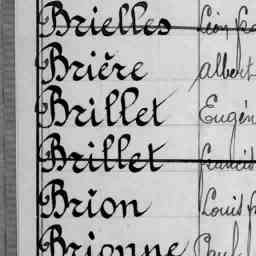 Brielles Léon
Brière Albert
Brillet Eugén
Brillet Francis
Brion Louis
Brionne Paul